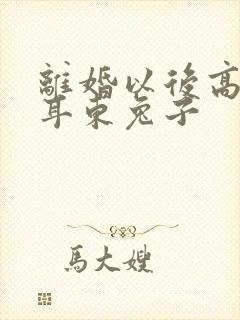 離婚以後高
耳東兔子
馬大嫂